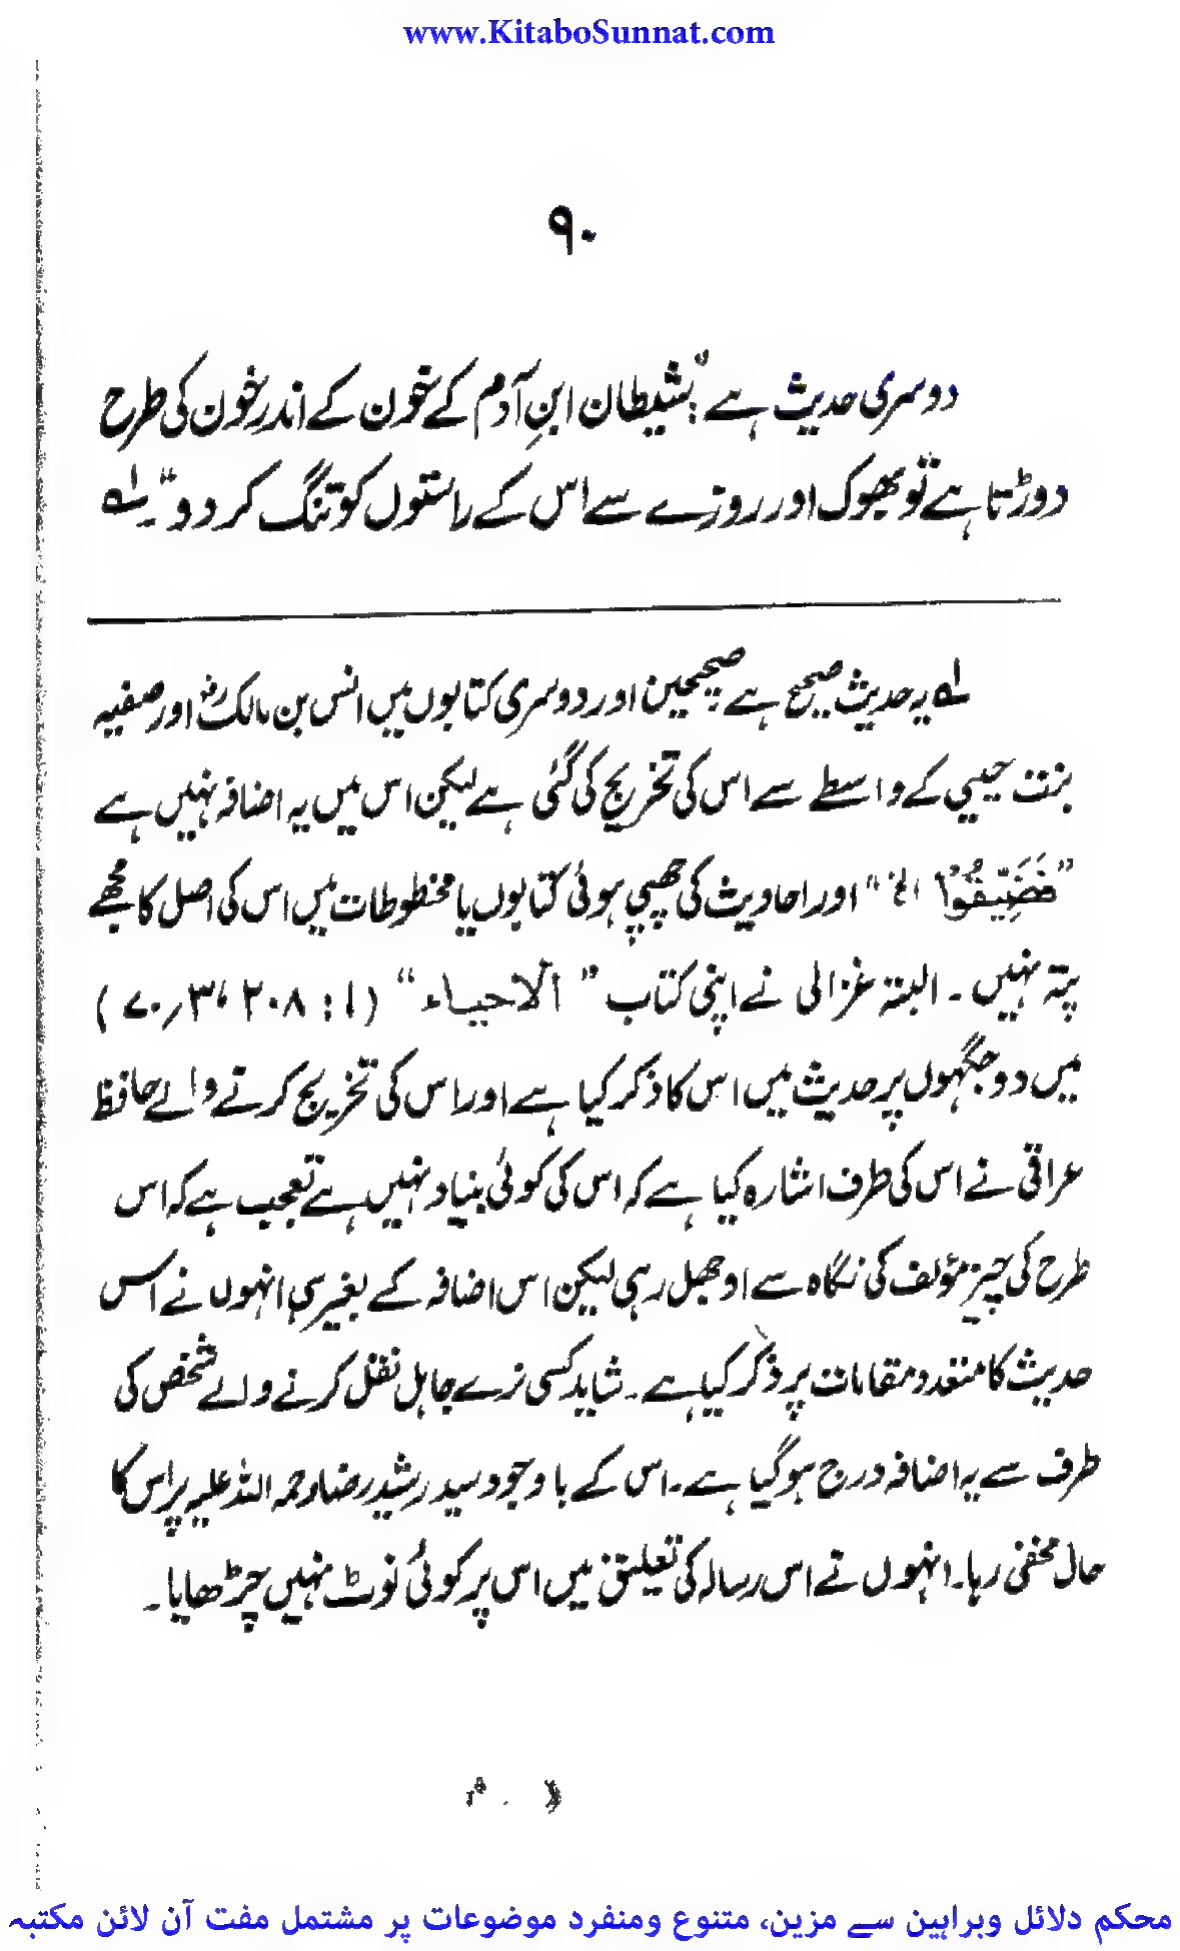 www.KitaboSunnat.com
۹۰
دوسری حدیث ہے: "شیطان ابنِ آدم کے خون کے اندر خون کی طرح
دوڑتا ہے تو بھوک اور روزے سے اس کے راستوں کو تنگ کر دو"۔ ۱؎
۱؎ یہ حدیث صحیح ہے صحیحین اور دوسری کتابوں میں انس بن مالکؓ اور صفیہ
بنت حیی کے واسطے سے اس کی تخریج کی گئی ہے لیکن اس میں یہ اضافہ نہیں ہے
"فَضَیِّقُوْا الخ" اور احادیث کی چھپی ہوئی کتابوں یا مخطوطات میں اس کی اصل کا مجھے
پتہ نہیں ۔ البتہ غزالی نے اپنی کتاب "الاحیاء" (۱: ۲۰۸، ۳/۷۰)
میں دو جگہوں پر حدیث میں اس کا ذکر کیا ہے اور اس کی تخریج کرنے والے حافظ
عراقی نے اس کی طرف اشارہ کیا ہے کہ اس کی کوئی بنیاد نہیں ہے تعجب ہے کہ اس
طرح کی چیز مؤلف کی نگاہ سے اوجھل رہی لیکن اس اضافہ کے بغیر ہی انہوں نے اس
حدیث کا متعدد مقامات پر ذکر کیا ہے ۔ شاید کسی نرے جاہل نقل کرنے والے شخص کی
طرف سے یہ اضافہ درج ہو گیا ہے۔ اس کے باوجود سید رشید رضا رحمہ اللہ علیہ پر اس کا
حال مخفی رہا۔ انہوں نے اس رسالہ کی تعلیق میں اس پر کوئی نوٹ نہیں چڑھایا ۔
محکم دلائل وبراہین سے مزین، متنوع ومنفرد موضوعات پر مشتمل مفت آن لائن مکتبہ